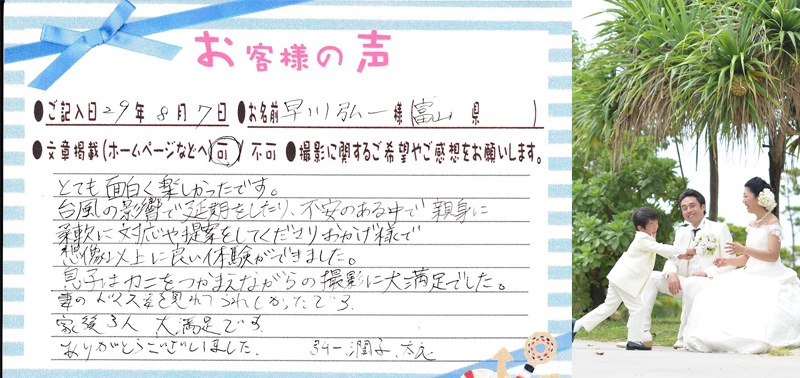 お客様の声
●ご記入日 29年 8月 7日 ●お名前 早川 弘一 様 (富山 県 )
●文章掲載(ホームページなどへ) 可 / 不可 ●撮影に関するご希望やご感想をお願いします。
とても面白く楽しかったです。
台風の影響で延期をしたり、不安のある中で親身に
柔軟に対応や提案をしてくださりおかげ様で
想像以上に良い体験ができました。
息子はカニをつかまえながらの撮影に大満足でした。
妻のドレス姿を見れてうれしかったです
家族3人 大満足です
ありがとうございました。 弘一、潤子、